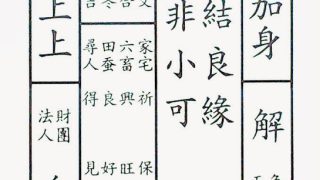 加身
解
結良緣
非小可
家宅祈保
六畜興旺
田蚕良好
尋人得見
上上
財團
法人